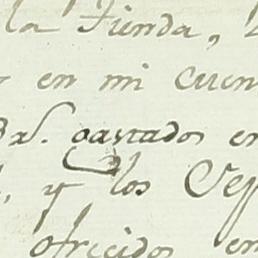 la Tienda,
en mi cuen
gastados en
, y los Cep
ofrecidos en